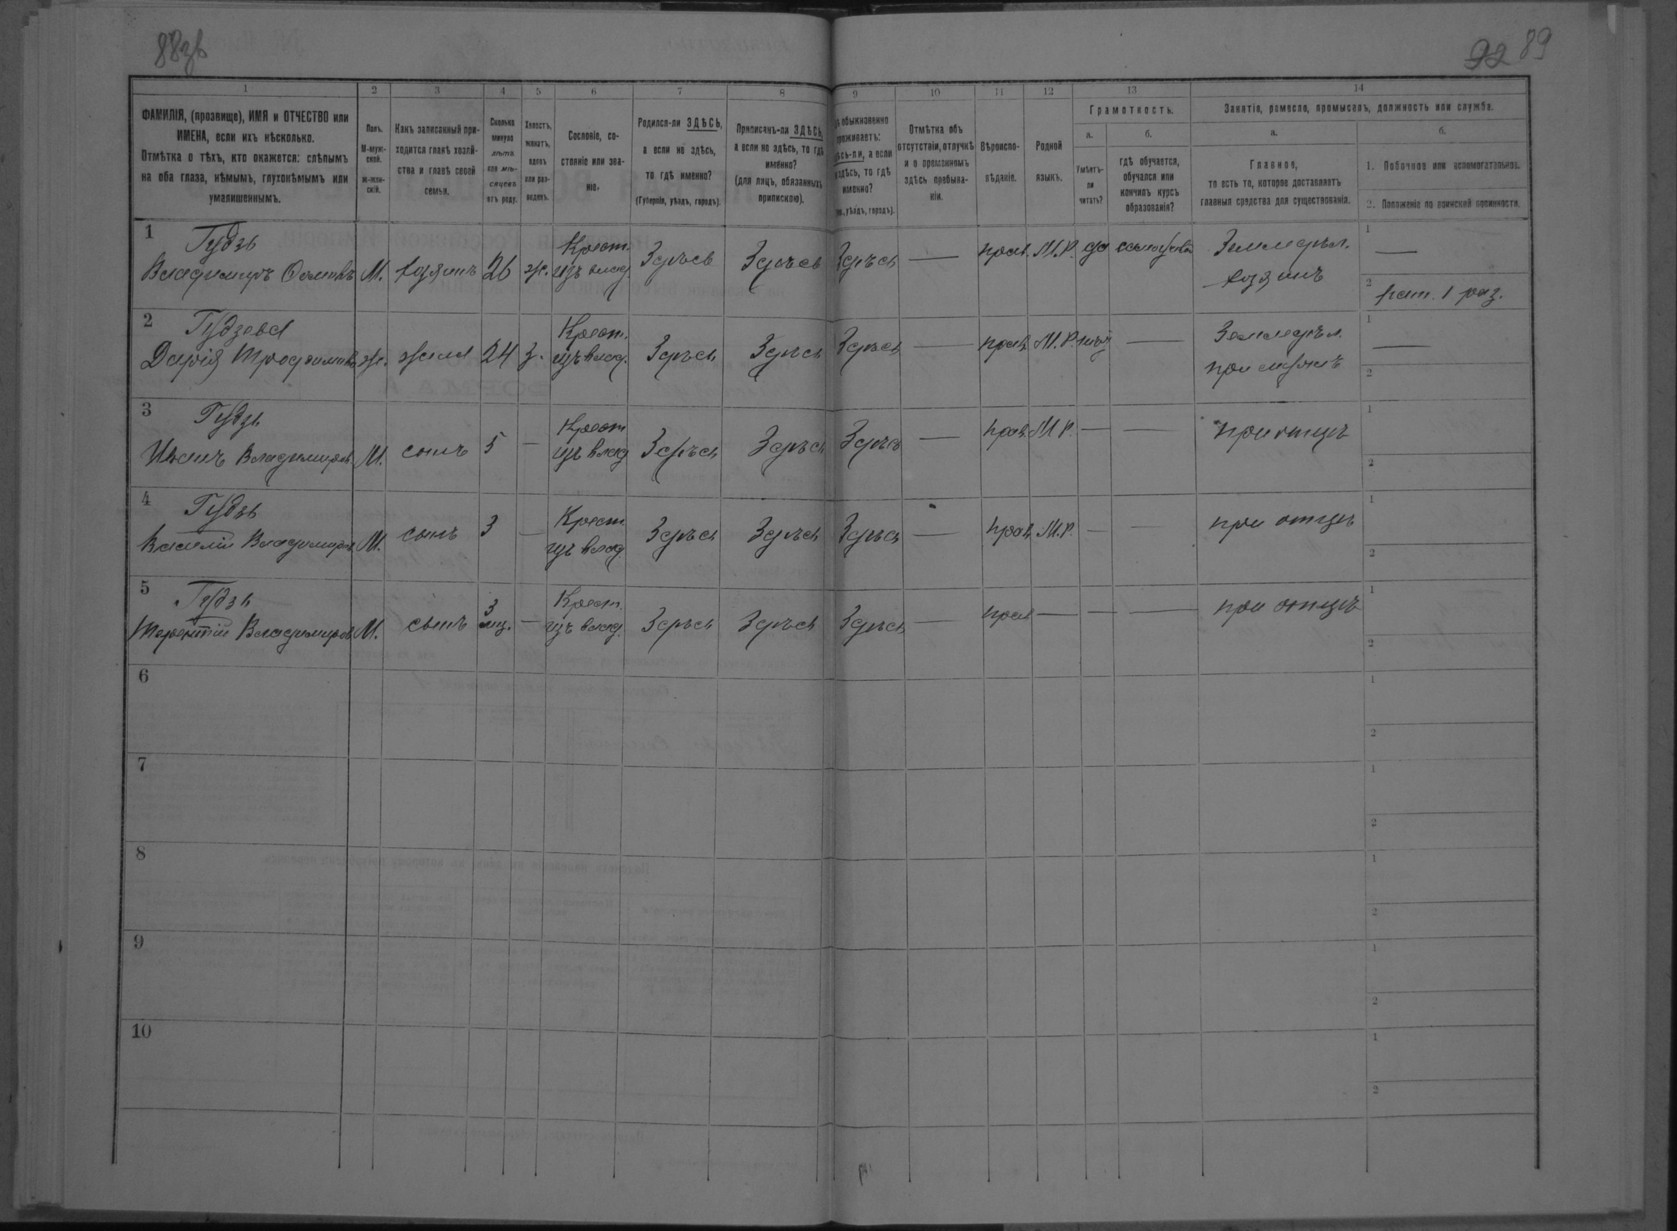 88зв
92 89
1
2
3
4
5
6
7
8
9
10
11
12
13
14
ФАМИЛІЯ, (прозвище), ИМЯ и ОТЧЕСТВО или
ИМЕНА, если ихъ нѣсколько.
Отмѣтка о тѣхъ, кто окажется: слѣпымъ
на оба глаза, нѣмымъ, глухонѣмымъ или
умалишеннымъ.
Полъ.
М-муж-
ской.
Ж-жен-
скій.
Какъ записанный при-
ходится главѣ хозяй-
ства и главѣ своей
семьи.
Сколько
минуло
лѣтъ
или мѣ-
сяцевъ
отъ роду.
Холостъ,
женатъ,
вдовъ
или раз-
веденъ.
Сословіе, со-
стояніе или зва-
ніе.
Родился-ли ЗДѢСЬ,
а если не здѣсь,
то гдѣ именно?
(Губернія, уѣздъ, городъ).
Приписанъ-ли ЗДѢСЬ,
а если не здѣсь, то гдѣ
именно?
(для лицъ, обязанныхъ
припискою).
обыкновенно
проживаетъ:
здѣсь-ли, а если
не здѣсь, то гдѣ
именно?
уѣздъ, городъ).
Отмѣтка объ
отсутствіи, отлучкѣ
и о временномъ
здѣсь пребыва-
ніи.
Вѣроиспо-
вѣданіе.
Родной
языкъ.
Грамотность.
а.
б.
Умѣетъ-
ли
читать?
гдѣ обучается,
обучался или
кончилъ курсъ
образованія?
Занятіе, ремесло, промыселъ, должность или служба.
а.
б.
Главное,
то есть то, которое доставляетъ
главныя средства для существованія.
1. Побочное или вспомогательное.
2. Положеніе по воинской повинности.
1
Гудзь
Владимиръ М. хозяинъ 26 ж. Крест. изъ влад. Здѣсь Здѣсь Здѣсь — прав. М.Р. да Земледѣл.
хозяинъ
1 —
2 рат. 1 раз.
2
Гудзева
Дарія Трофимова ж. жена 24 з. Крест. изъ влад. Здѣсь Здѣсь Здѣсь — прав. М.Р. нѣт — Земледѣл.
при мужѣ
1 —
2
3
Гудзь
Иванъ Владимиров М. сынъ 5 — Крест. изъ влад. Здѣсь Здѣсь Здѣсь — прав. М.Р. — — при отцѣ
1
2
4
Гудзь
Василій Владимиров М. сынъ 3 — Крест. изъ влад. Здѣсь Здѣсь Здѣсь — прав. М.Р. — — при отцѣ
1
2
5
Гудзь
Терентій Владимиров М. сынъ 3 мц. — Крест. изъ влад. Здѣсь Здѣсь Здѣсь — прав. — — — при отцѣ
1
2
6
1
2
7
1
2
8
1
2
9
1
2
10
1
2